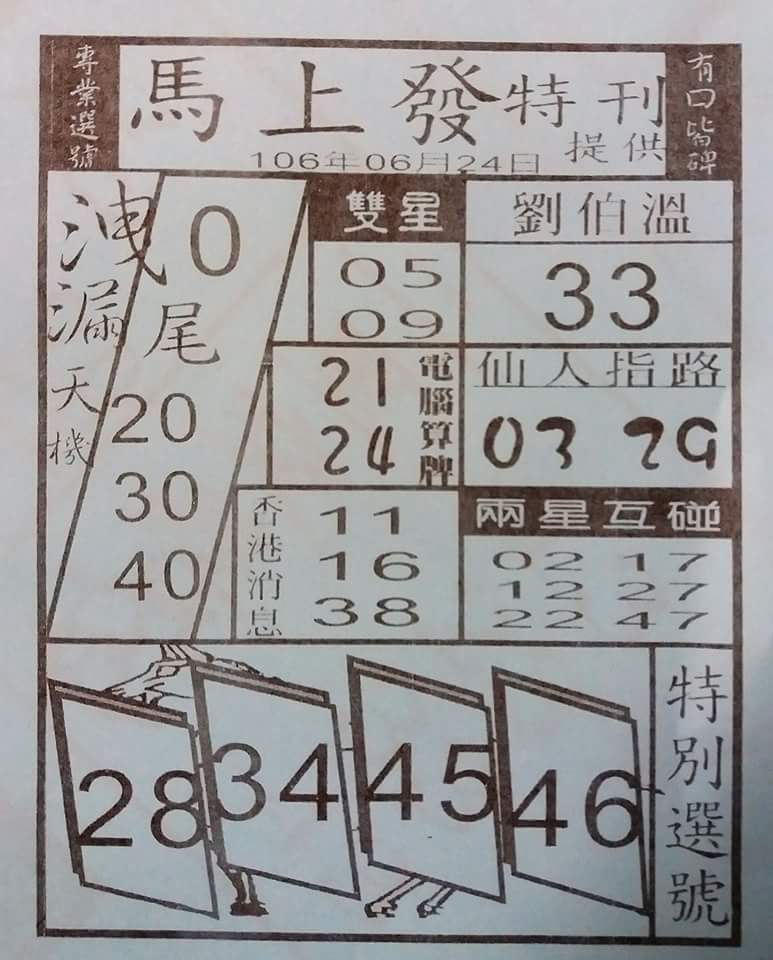 專業選號
馬上發特刊
提供
有口皆碑
106年06月24日
洩漏天機
0
尾
20
30
40
雙星
05
09
劉伯溫
33
21
24
電腦算牌
仙人指路
03 29
香港消息
11
16
38
兩星互碰
02 17
12 27
22 47
28 34 45 46
特別選號